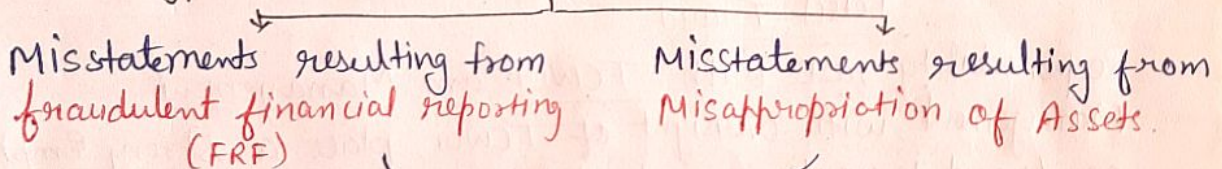 Misstatements resulting from
fraudulent financial reporting
(FRF)
Misstatements resulting from
Misappropriation of Assets.